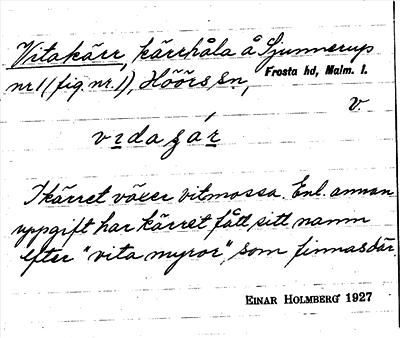 Vitakärr, kärrhåla å Sjunnerup
nr 1 (fig. nr. 1), Höörs sn, Frosta hd, Malm. l.
v.
vıdaʒár
I kärret växer vitmossa. Enl. annan
uppgift har kärret fått sitt namn
efter "vita myror", som finnas där.
EINAR HOLMBERG 1927